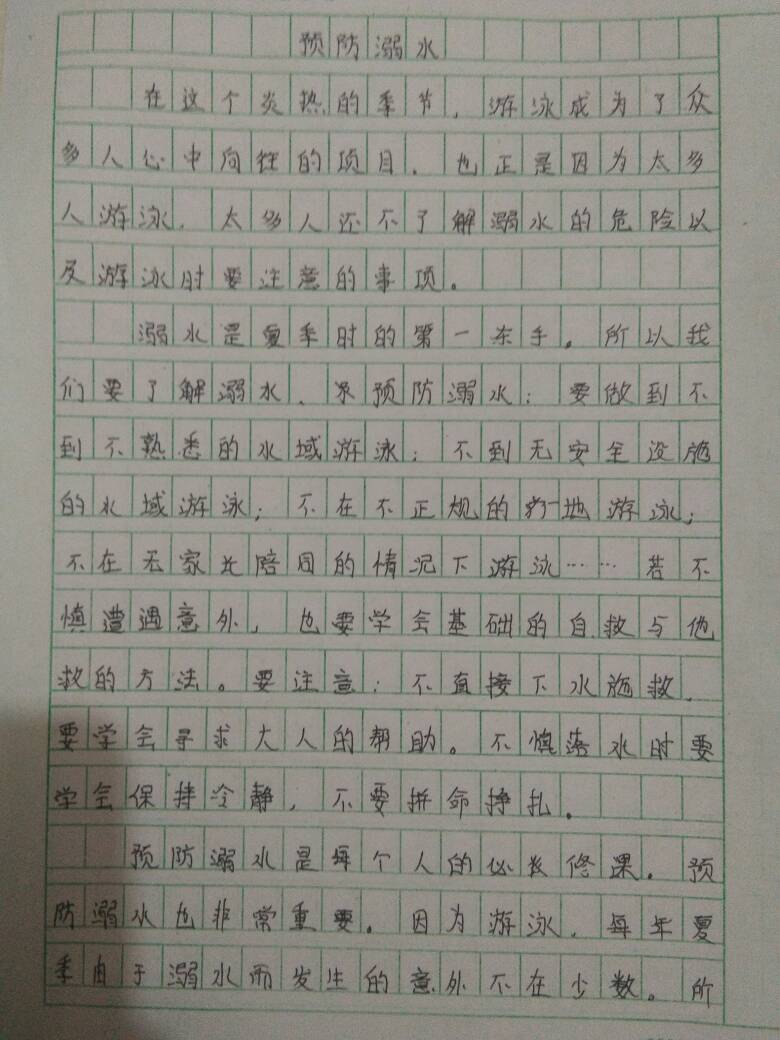 预防溺水
在这个炎热的季节，游泳成为了众
多人心中向往的项目．也正是因为太多
人游泳．太多人还不了解溺水的危险以
及游泳时要注意的事项。
溺水是夏季时的第一杀手。所以我
们要了解溺水、预防溺水：要做到不
到不熟悉的水域游泳；不到无安全设施
的水域游泳；不在不正规的地游泳；
不在无家长陪同的情况下游泳……若不
慎遭遇意外，也要学会基础的自救与他
救的方法。要注意：不直接下水施救．
要学会寻求大人的帮助。不慎落水时要
学会保持冷静，不要拼命挣扎．
预防溺水是每个人的必修课．预
防溺水也非常重要。因为游泳．每年夏
季由于溺水而发生的意外不在少数。所